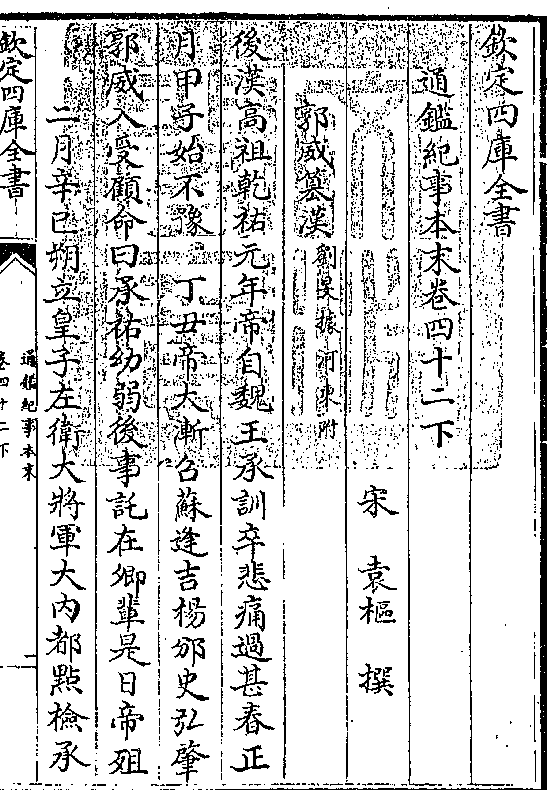 欽定四庫全書
通鑑紀事本末卷四十二下
宋 袁樞 撰
郭威篡漢 劉旻據河東附
後漢高祖乾祐元年帝自魏王承訓卒悲痛過甚春正
月甲子始不豫 丁丑帝大漸召蘇逢吉楊邠史弘肇
郭威入受顧命曰承祐幼弱後事託在卿輩是日帝殂
二月辛巳朔立皇子左衛大將軍大內都點檢承
欽定四庫全書
通鑑紀事本末
卷四十二下
一